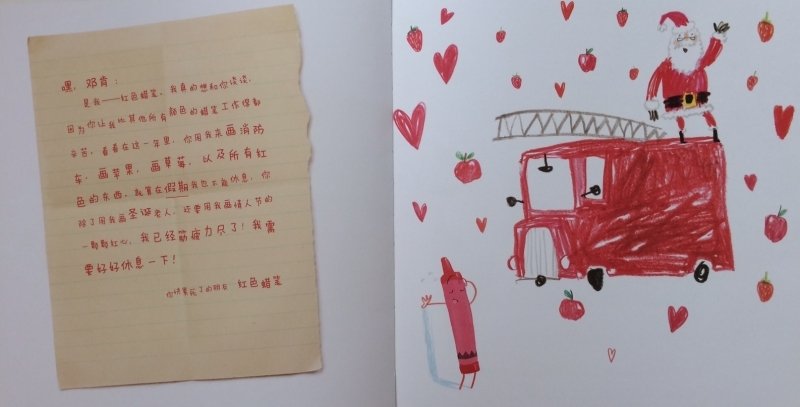 嘿，邓肯：
是我——红色蜡笔，我真的想和你谈谈，
因为你让我比其他所有颜色的蜡笔工作得都
辛苦。看看在这一年里，你用我来画消防
车，画苹果，画草莓，以及所有红
色的东西，就算在假期我也不能休息，你
除了用我画圣诞老人，还要用我画情人节的
一颗颗红心，我已经筋疲力尽了！我需
要好好休息一下！
你快累死了的朋友 红色蜡笔